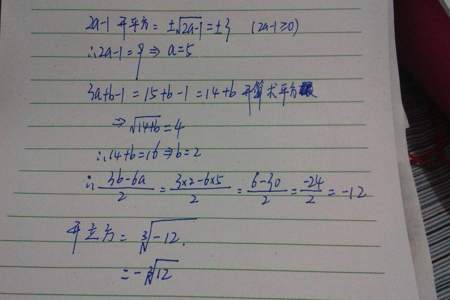 2a-1 开平方= ±√2a-1 = ±3 (2a-1≥0)
∴2a-1=9 ⇒ a=5
3a+b-1=15+b-1=14+b 开算术平方
⇒ √14+b = 4
∴14+b=16 ⇒ b=2
∴ 3b-6a/2 = 3×2-6×5/2 = 6-30/2 = -24/2 = -12
开立方= ∛-12.
= -∛12